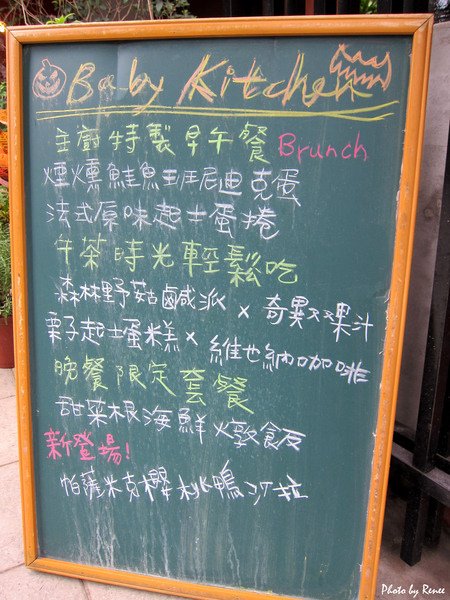 Baby Kitchen
主廚特製早午餐 Brunch
煙燻鮭魚班尼迪克蛋
法式原味起士蛋捲
午茶時光輕鬆吃
森林野菇鹹派 × 奇異果汁
栗子起士蛋糕 × 維也納咖啡
晚餐限定套餐
甜菜根海鮮燉飯
新登場!
帕薩米克櫻桃鴨沙拉
Photo by Renee